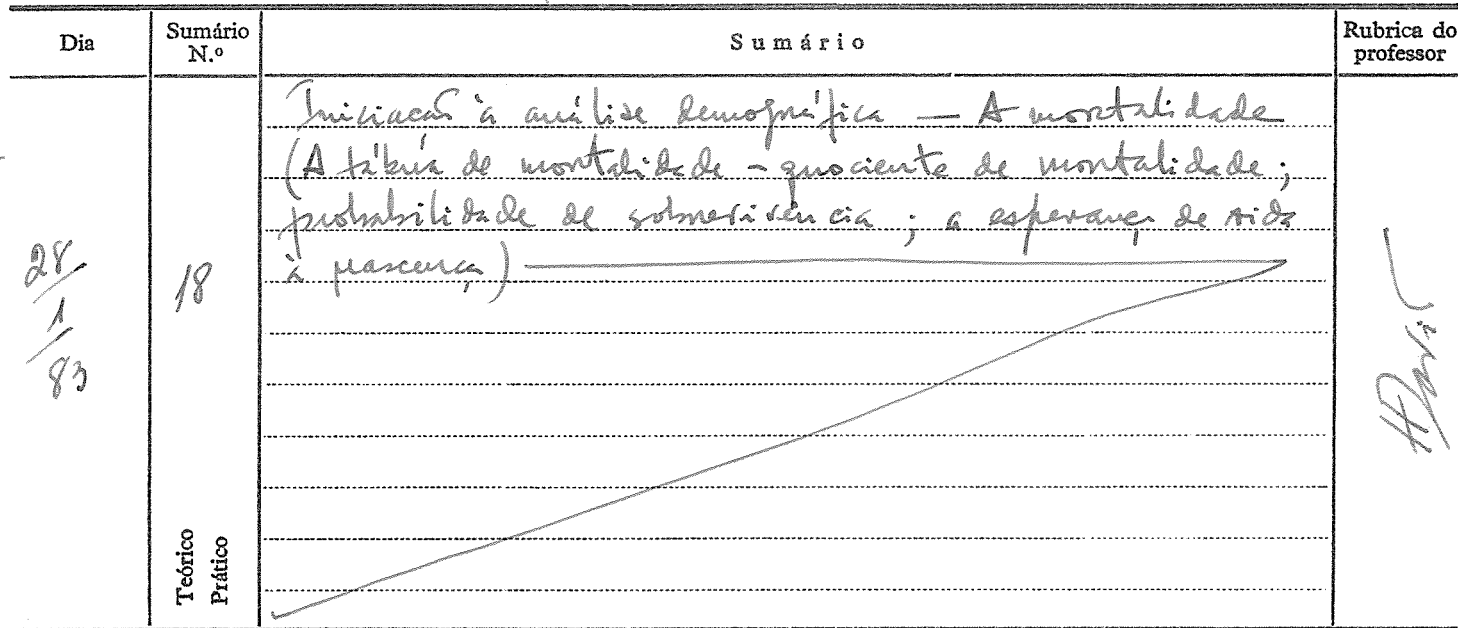 Dia
Sumário N.º
Sumário
Rubrica do professor
28/1/83
18
Iniciação à análise demográfica — A mortalidade
(A tábua de mortalidade - quociente de mortalidade;
probabilidade de sobrevivência; a esperança de vida
à nascença)
Teórico
Prático